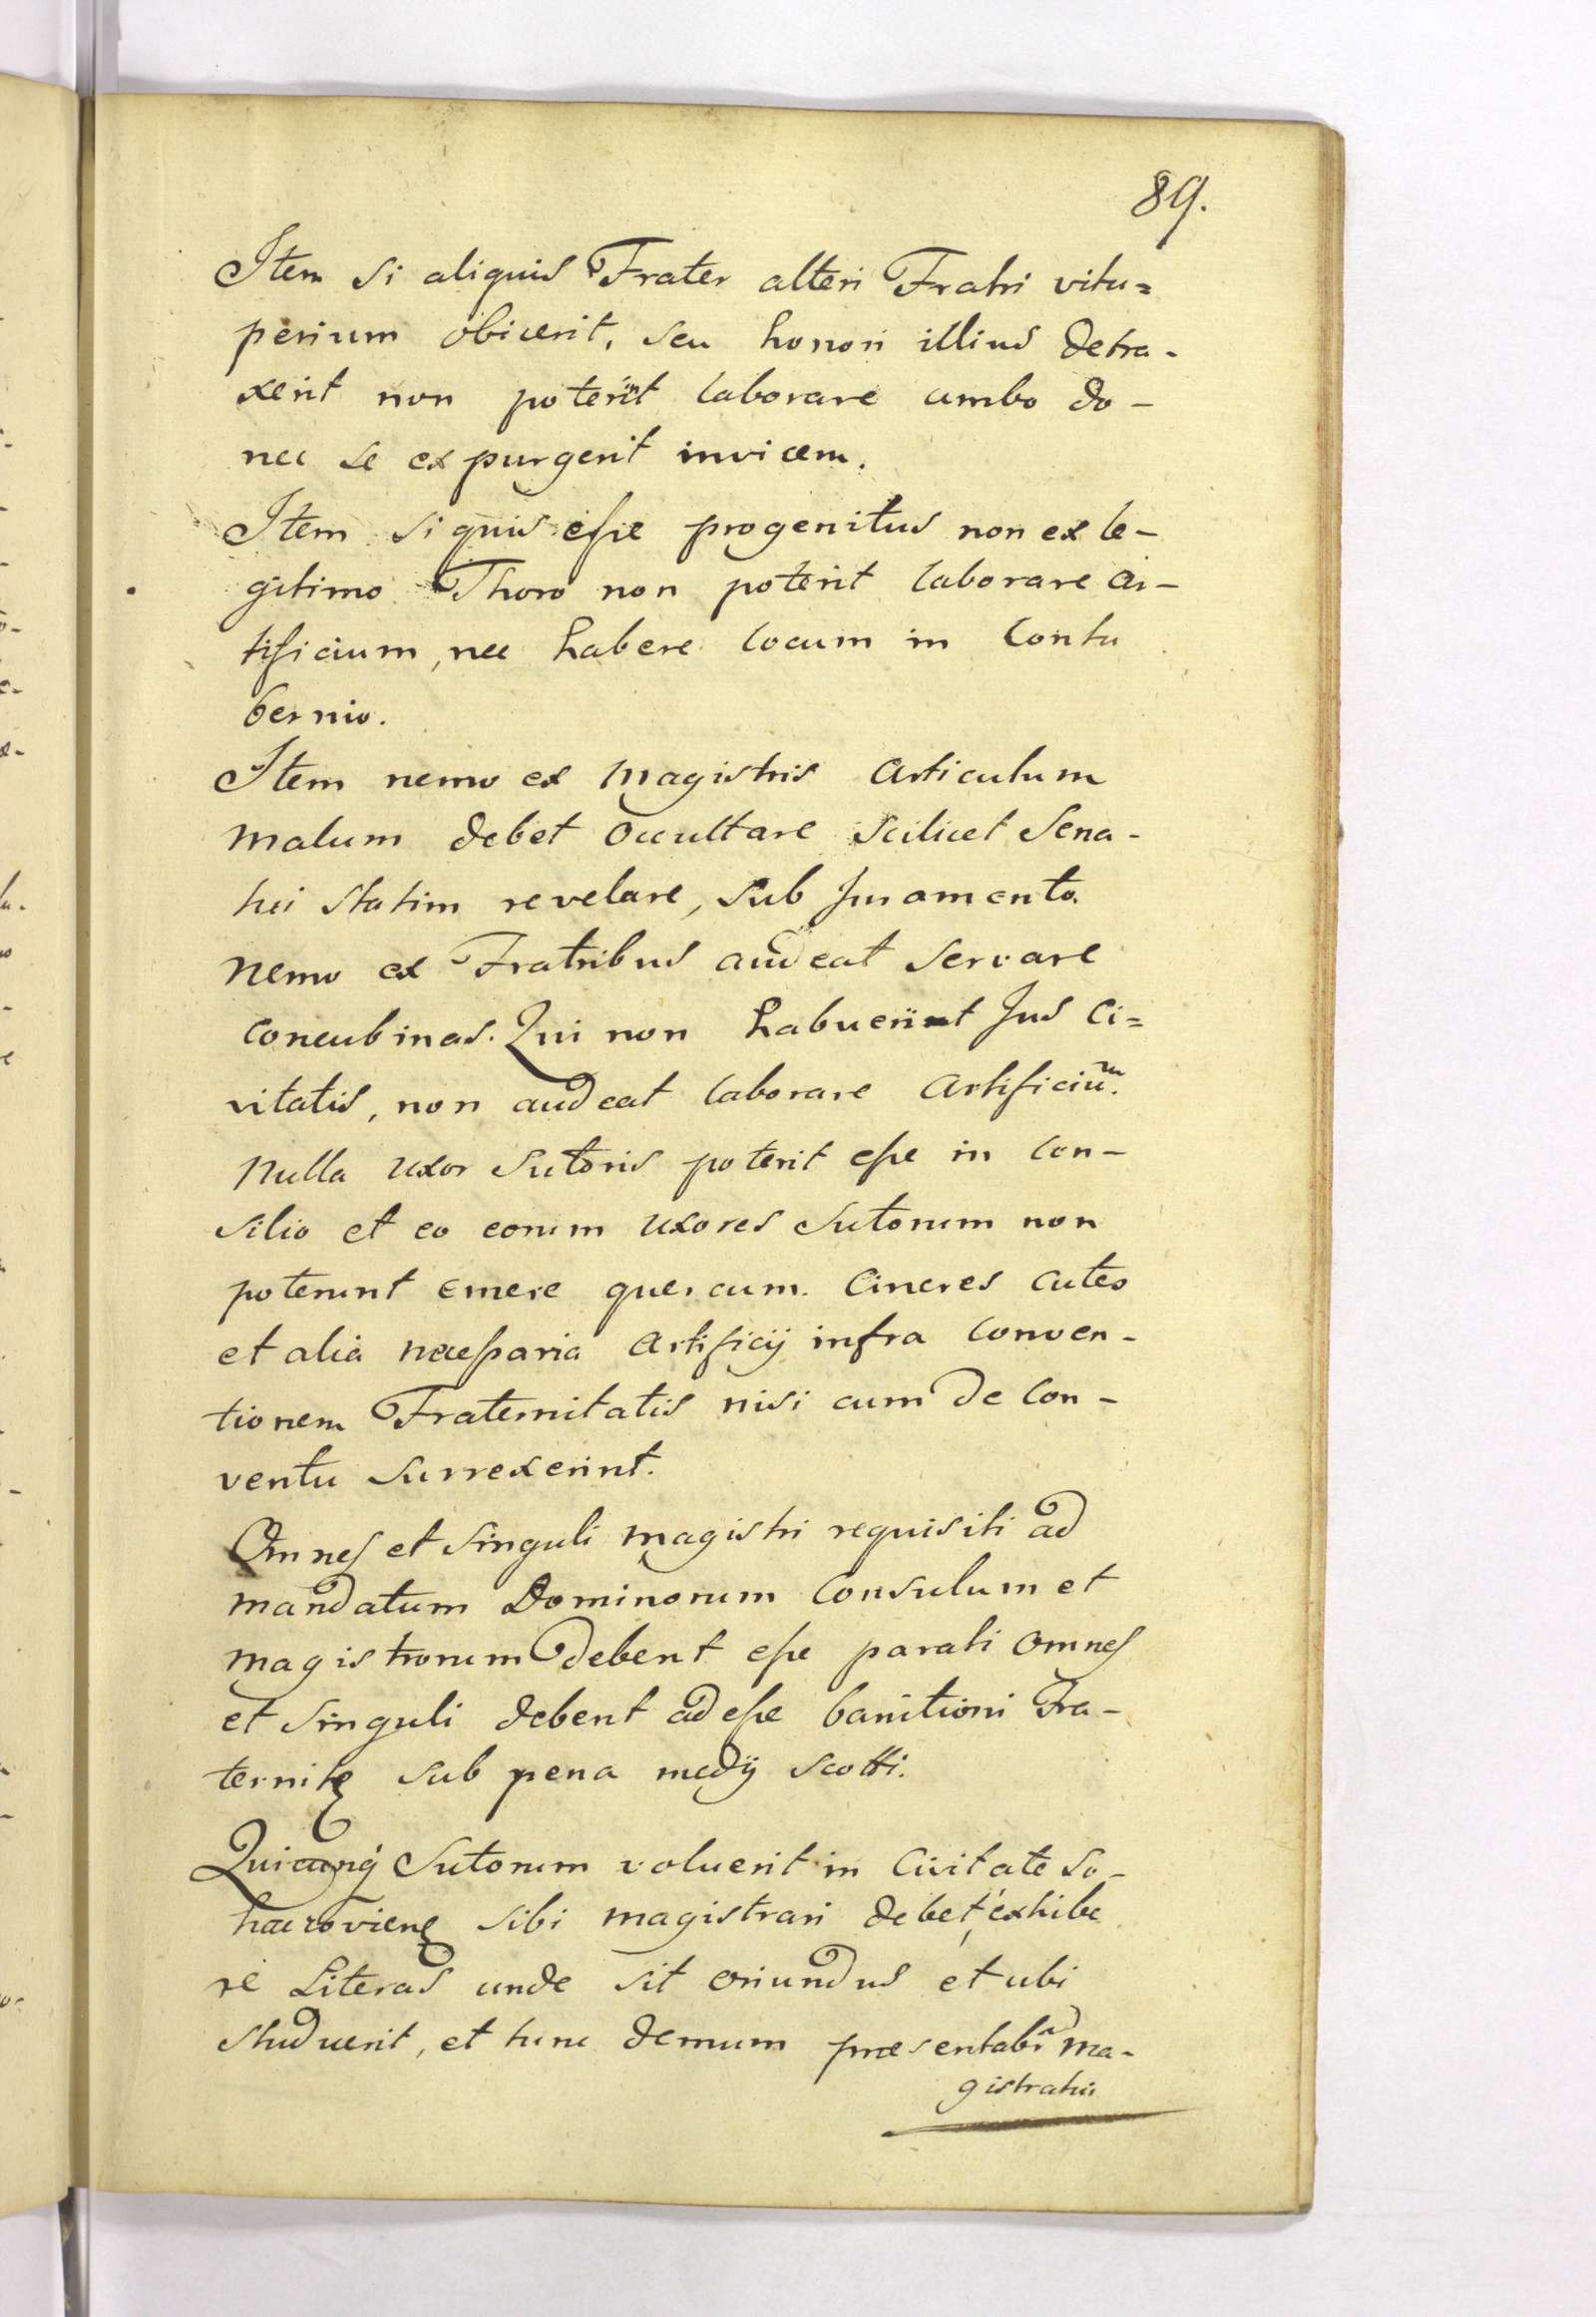 89.
Item si aliquis Frater alteri Fratri vitu=
perium obicerit, seu honori illius detra-
xerit non poterit laborare ambo do-
nec se expurgerit invicem.
Item si quis esse progenitus non ex le-
gitimo Thoro non poterit laborare ar-
tificium, nec habere locum in Contu
bernio.
Item nemo ex Magistris Articulum
malum debet occultare scilicet Sena-
tui statim revelare, sub Juramento.
Nemo ex Fratribus audeat servare
concubinas. Qui non habuerint Jus Ci=
vitatis, non audeat laborare Artificium.
Nulla uxor Sutoris poterit esse in con-
silio et eo eorum uxores Sutorum non
poterunt emere quercum. Cineres cutes
et alia necessaria Artificij infra conven-
tionem Fraternitatis nisi cum de con-
ventu surrexerint.
Omnes et singuli magistri requisiti ad
mandatum Dominorum Consulum et
magistrorum debent esse parati omnes
et singuli debent adesse banitioni Fra-
ternitę sub pena medij scotti.
Quicunq́ Sutorum voluerit in Civitate So-
haczovienę sibi magistrari debet, exhibe
re Literas unde sit oriundus et ubi
studuerit, et tunc demum præsentabr̃ ma-
gistratui